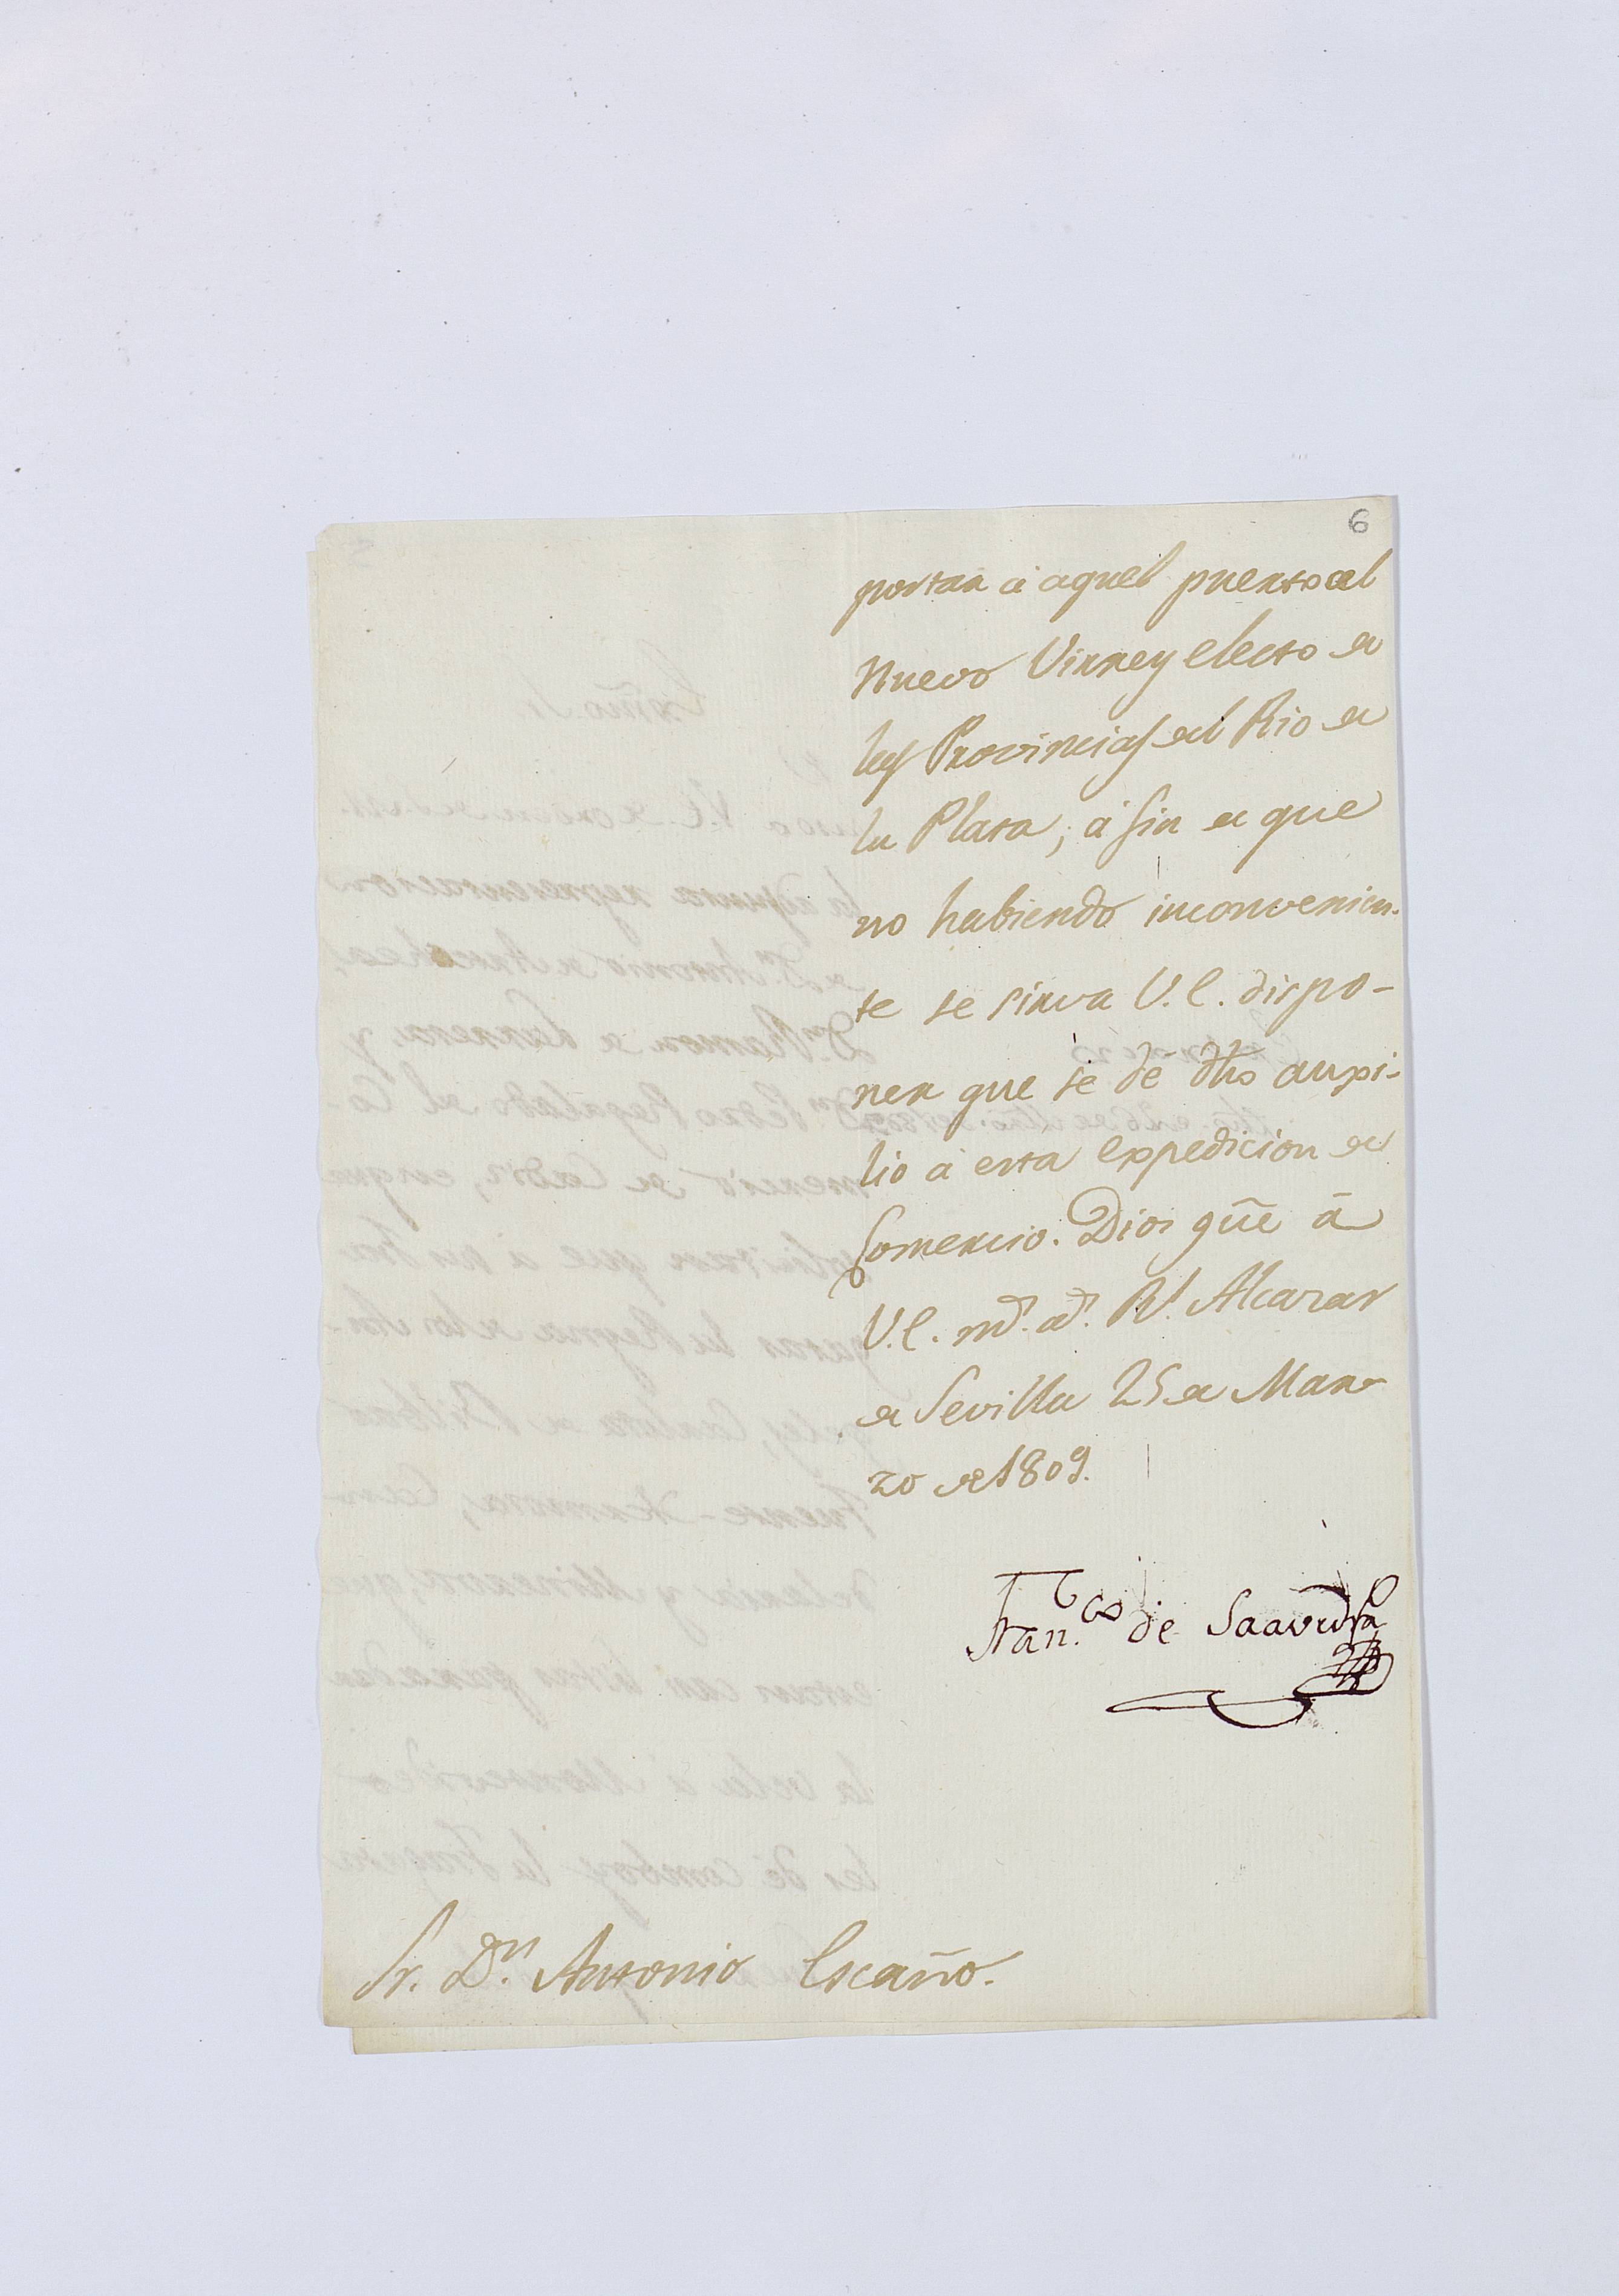 6
portar á aquel puerto al
Nuevo Virrey electo de
las Provincias del Rio de
la Plata, á fin de que
no habiendo inconvenien-
te se sirva V.E. dispo-
ner que se dé dho auxi-
lio á esta expedicion de
Comercio. Dios gũe á
V.E. m.ˢ a.ˢ R.ˡ Alcazar
de Sevilla 25 de Mar-
zo de 1809.
Fran.ᶜᵒ de Saavedra
Sr. D.ⁿ Antonio Escaño.